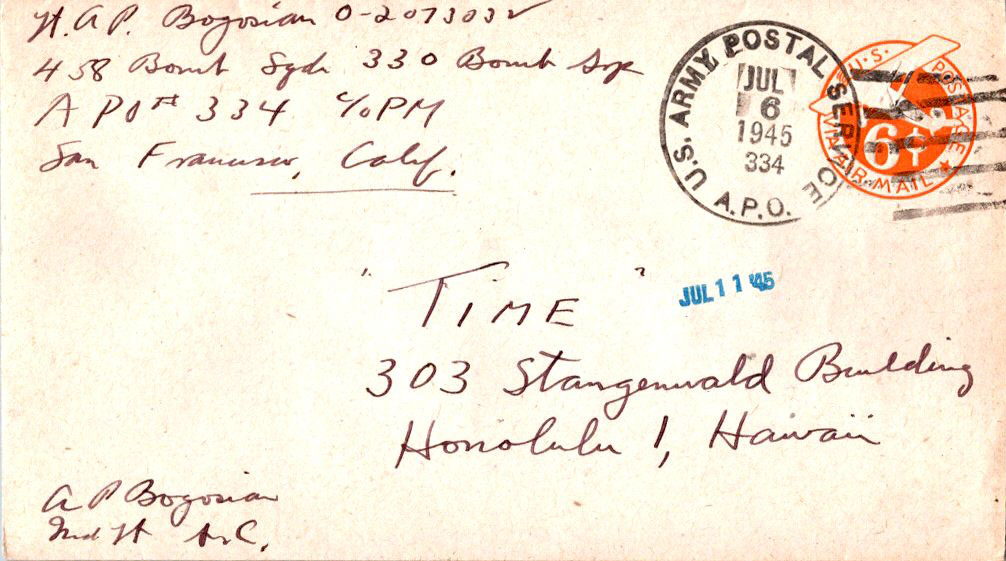 Lt. A.P. Bogosian O-2073032
458 Bomb Sqdn 330 Bomb Grp
APO# 334 c/o PM
San Francisco, Calif.
U.S. ARMY POSTAL SERVICE
JUL
6
1945
334
A.P.O.
U.S. POSTAGE
6¢
VIA AIR MAIL
JUL 11 '45
"TIME"
303 Stangenwald Building
Honolulu 1, Hawaii
A P Bogosian
2nd Lt A.C.